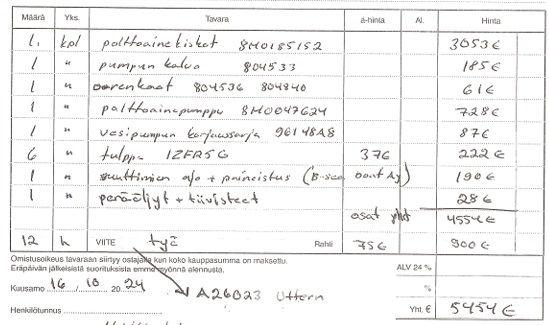 Määrä Yks. Tavara à-hinta Al. Hinta
1. kpl polttoainekiskot 8M0185152 3053 €
1 " pumpun kalvo 804533 185 €
1 " 804536 804840 61 €
1 " polttoainepumppu 8M0047624 728 €
1 " vesipumpun korjaussarja 96148A8 87 €
6 " tulppa IZFR5G 37 € 222 €
1 " suuttimien ajo + paineistus (B-sea boat Ay) 190 €
1 " perääljyt + tiivisteet 28 €
osat yht 4554 €
12 h VIITE työ Rahti 75 € 900 €
Omistusoikeus tavaraan siirtyy ostajalle kun koko kauppasumma on maksettu.
Eräpäivän jälkeisistä suorituksista emme myönnä alennusta.
ALV 24 %
Kuusamo 16 / 10 2024 A26023 Uttern
%
Henkilötunnus Yht. € 5454 €